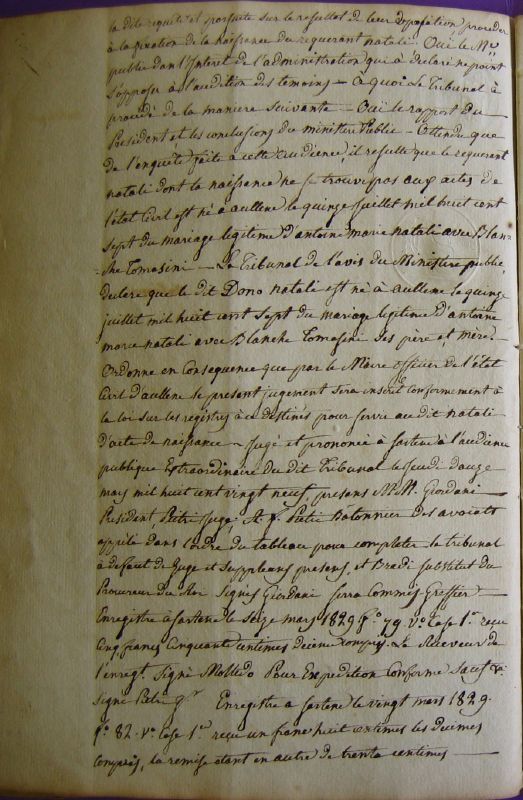 la dite requete et par suite sur le resultat de leur deposition proceder
à la fixation de la naissance du requerant natali. Oui le M.re
public dans l'interet de l'administration qui à declaré ne point
s'opposer à l'audition des temoins — à quoi le Tribunal à
procédé de la maniere suivante — Oui le rapport du
President, et les conclusions du ministere Public — Attendu que
de l'enquête faite à cette audience, il resulte que le requerant
natali dont la naissance ne se trouve pas aux actes de
l'état Civil est né à aullene le quinze juillet mil huit cent
sept du mariage legitime d'antoine marie natali avec Blan-
-che Tomasini — Le Tribunal de l'avis du Ministere public,
declare que le dit Dono natali est né à aullene le quinze
juillet mil huit cent sept du mariage legitime d'antoine
marie natali avec Blanche Tomasini ses père et mère.
Ordonne en Consequence que par le Maire officier de l'état
Civil d'aullene le present jugement sera inscrit conformement à
la loi sur les registres à ce destinés pour servir au dit natali
d'acte de naissance — jugé et prononcé à Sartene à l'audience
publique Extraordinaire du dit Tribunal le jeudi douze
mars mil huit cent vingt neuf, presens M.M. Giordani
President, Pietri juge, A. F. Pietri Batonnier des avocats
appellé dans l'ordre du tableau pour completer le tribunal
à defaut de juge et suppleans presens, et substitut du
Procureur du Roi Signés Giordani Serra Commis Greffier —
Enregistré à Sartene le Seize mars 1829 f.o 79 v.o Case 1.re reçu
Cinq francs Cinquante centimes decime compris. Le Receveur de
l'enregt. Signé Moltedo Pour Expedition Conforme
Signé Pietri g.er Enregistré à Sartene le vingt mars 1829.
f.o 82. v.o Case 1.re reçu un franc huit centimes les decimes
compris, la remise etant en outre de trente centimes —